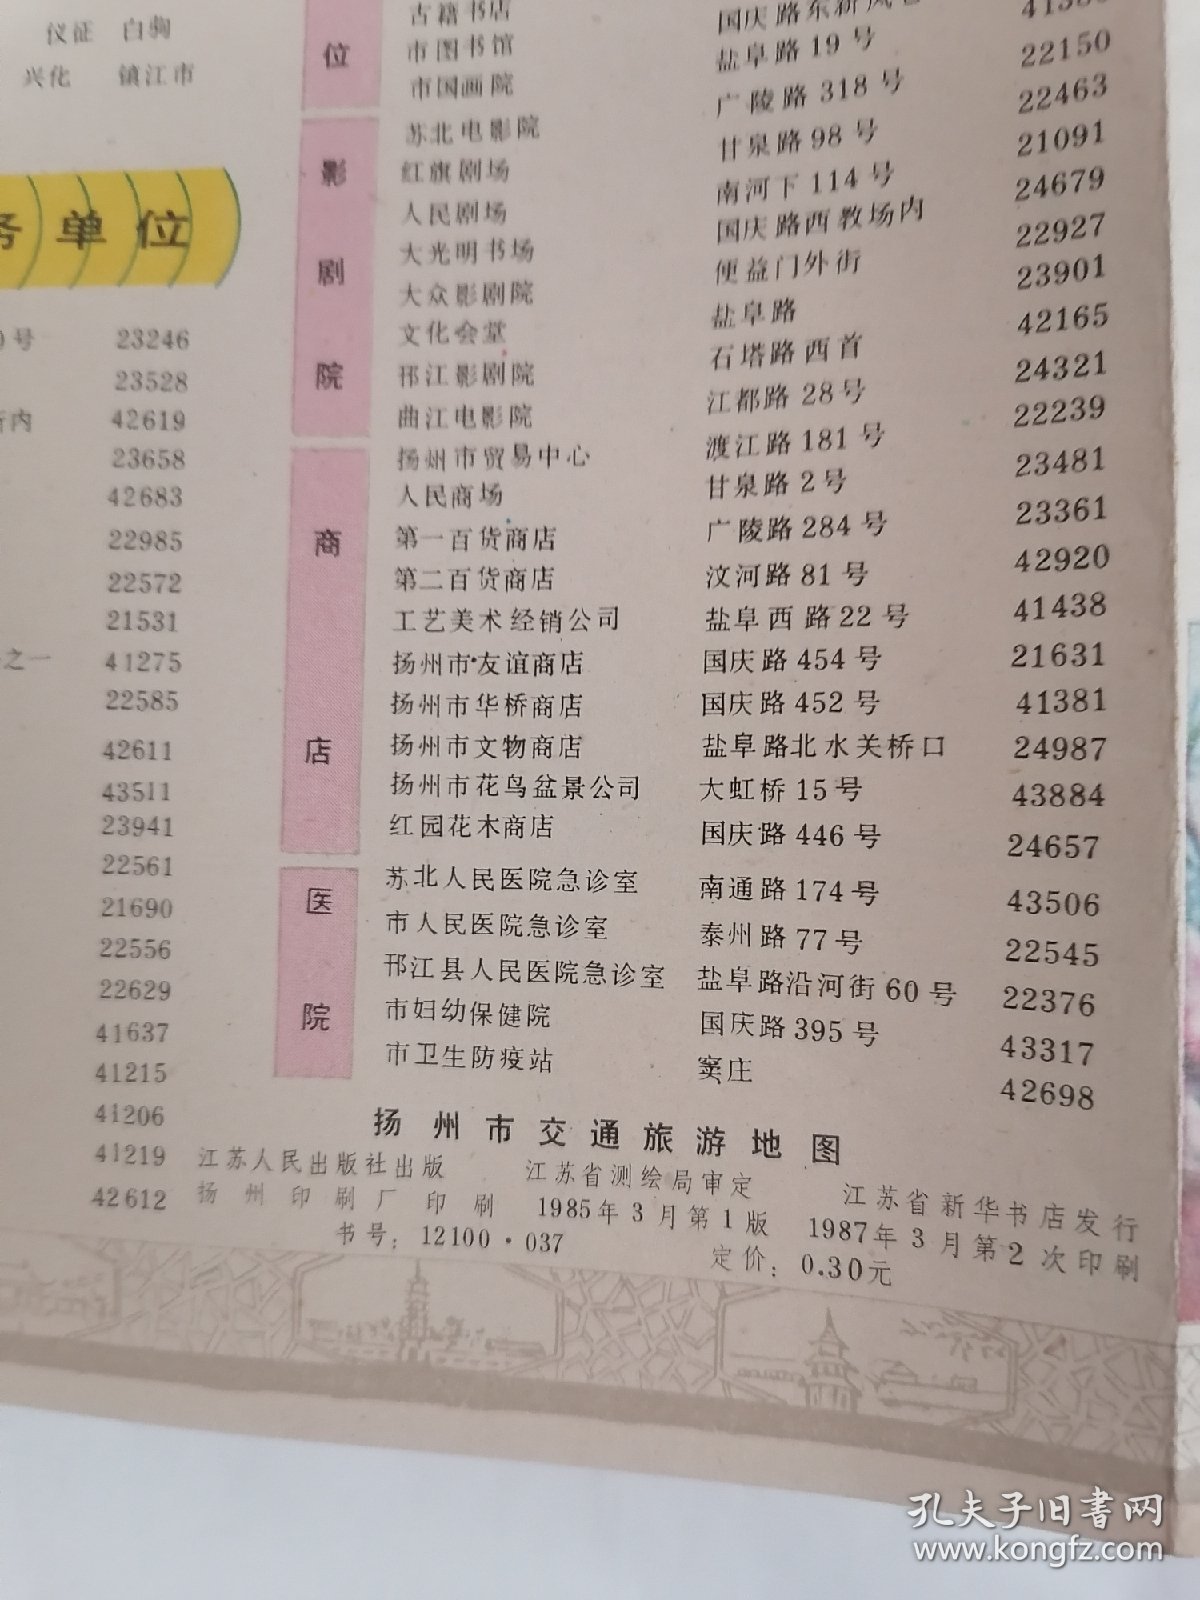 仪征 白驹
兴化 镇江市
务单位
号 23246
23528
内 42619
23658
42683
22985
22572
21531
之一 41275
22585
42611
43511
23941
22561
21690
22556
22629
41637
41215
41206
41219
42612
位
古籍书店
市图书馆 国庆路东新风
市国画院 盐阜路19号
影剧院
苏北电影院 广陵路318号 22150
红旗剧场 甘泉路98号 22463
人民剧场 南河下114号 21091
大光明书场 国庆路西教场内 24679
大众影剧院 便益门外街 22927
文化会堂 盐阜路 23901
邗江影剧院 石塔路西首 42165
曲江电影院 江都路28号 24321
商店
扬州市贸易中心 渡江路181号 22239
人民商场 甘泉路2号 23481
第一百货商店 广陵路284号 23361
第二百货商店 汶河路81号 42920
工艺美术经销公司 盐阜西路22号 41438
扬州市友谊商店 国庆路454号 21631
扬州市华桥商店 国庆路452号 41381
扬州市文物商店 盐阜路北水关桥口 24987
扬州市花鸟盆景公司 大虹桥15号 43884
红园花木商店 国庆路446号 24657
医院
苏北人民医院急诊室 南通路174号 43506
市人民医院急诊室 泰州路77号 22545
邗江县人民医院急诊室 盐阜路沿河街60号 22376
市妇幼保健院 国庆路395号 43317
市卫生防疫站 窦庄 42698
扬州市交通旅游地图
江苏人民出版社出版 江苏省测绘局审定 江苏省新华书店发行
扬州印刷厂印刷 1985年3月第1版 1987年3月第2次印刷
书号：12100·037 定价：0.30元
孔夫子旧书网
www.kongfz.com